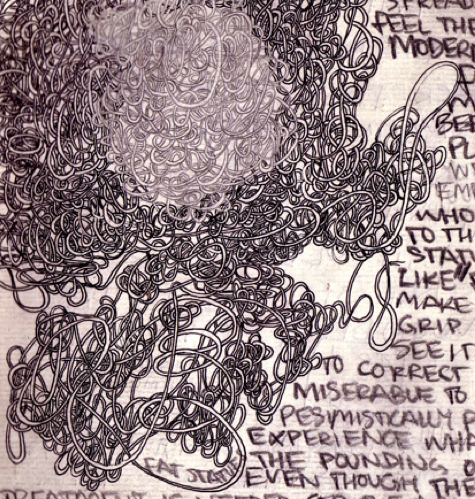 SPREAD
FEEL THE
MODER
BE
PL
WI
EM
WHO
TO TH
STAT
LIKE
MAKE
GRIP.
SEE IT
TO CORRECT
MISERABLE TO
PESIMISTICALLY P
EXPERIENCE WH
CAT STATUE
THE POUNDING
EVEN THOUGH THE
TREATMENT IS NEEDED